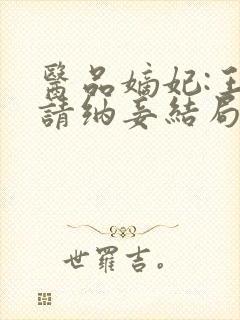 醫品嫡妃:王
請纳妾結局
世羅吉。